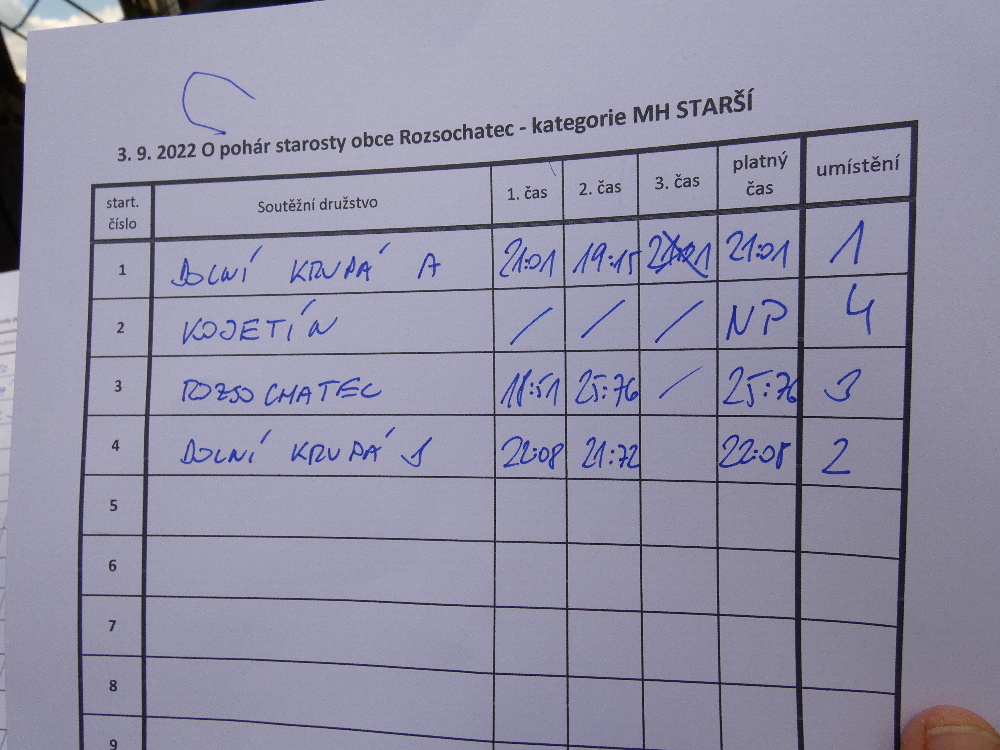 3. 9. 2022 O pohár starosty obce Rozsochatec - kategorie MH STARŠÍ
start. číslo Soutěžní družstvo 1. čas 2. čas 3. čas platný čas umístění
1 DOLNÍ KRUPÁ A 21:01 19:15 21:01 21:01 1
2 KOJETÍN / / / NP 4
3 ROZSOCHATEC 18:51 25:76 / 25:76 3
4 DOLNÍ KRUPÁ 22:08 21:72 22:08 2
5
6
7
8
9